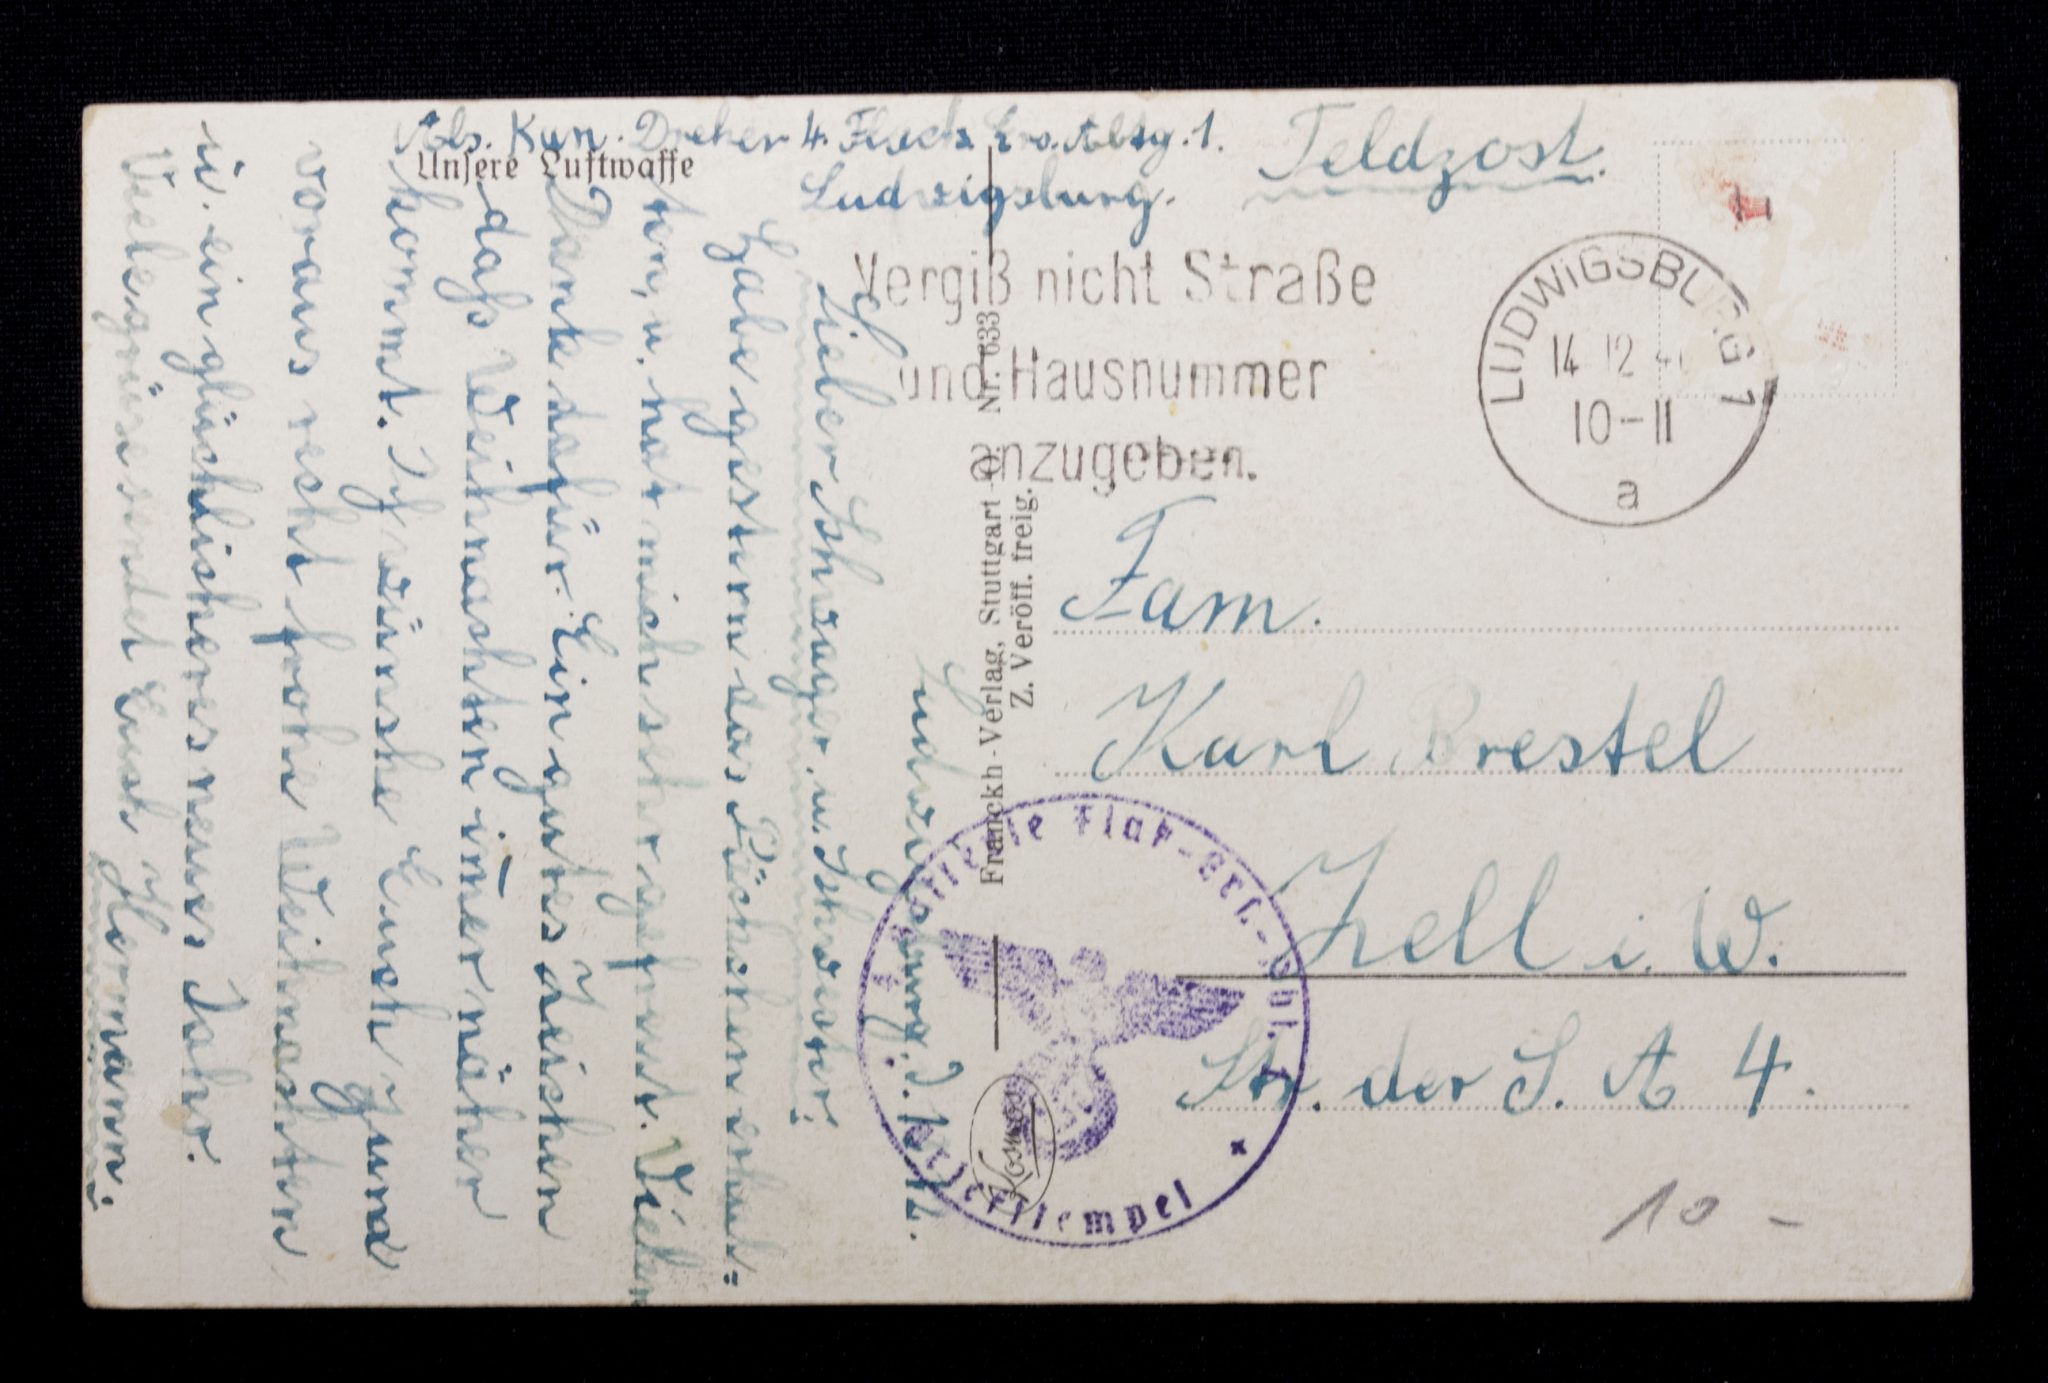 Abs. Kan. Dreher 4. Flack Ers. Abtg. 1.
Ludwigsburg.
Feldpost.
Unsere Luftwaffe
Vergiß nicht Straße
und Hausnummer
anzugeben.
LUDWIGSBURG 1
14 12
10-11
a
Fam.
Karl Brestel
Zell i. W.
Str. der S. A 4.
10 -
Franckh-Verlag, Stuttgart Nr. 633
Z. Veröff. freig.
Kosmos
Flak-Ers.-Abt.
Briefstempel
Ludwigsburg.
Lieber Schwager u. Schwester.
Habe gestern das Päckchen erhal=
ten, u. hat mich sehr gefreut. Vielen
Dank dafür. Ein gutes Zeichen
daß Weihnachten imer näher
kommt. Ich wünsche Euch zum
voraus recht frohe Weihnachten
u. ein glückliches neues Jahr.
Viele grüse sendet Euch Hermann.